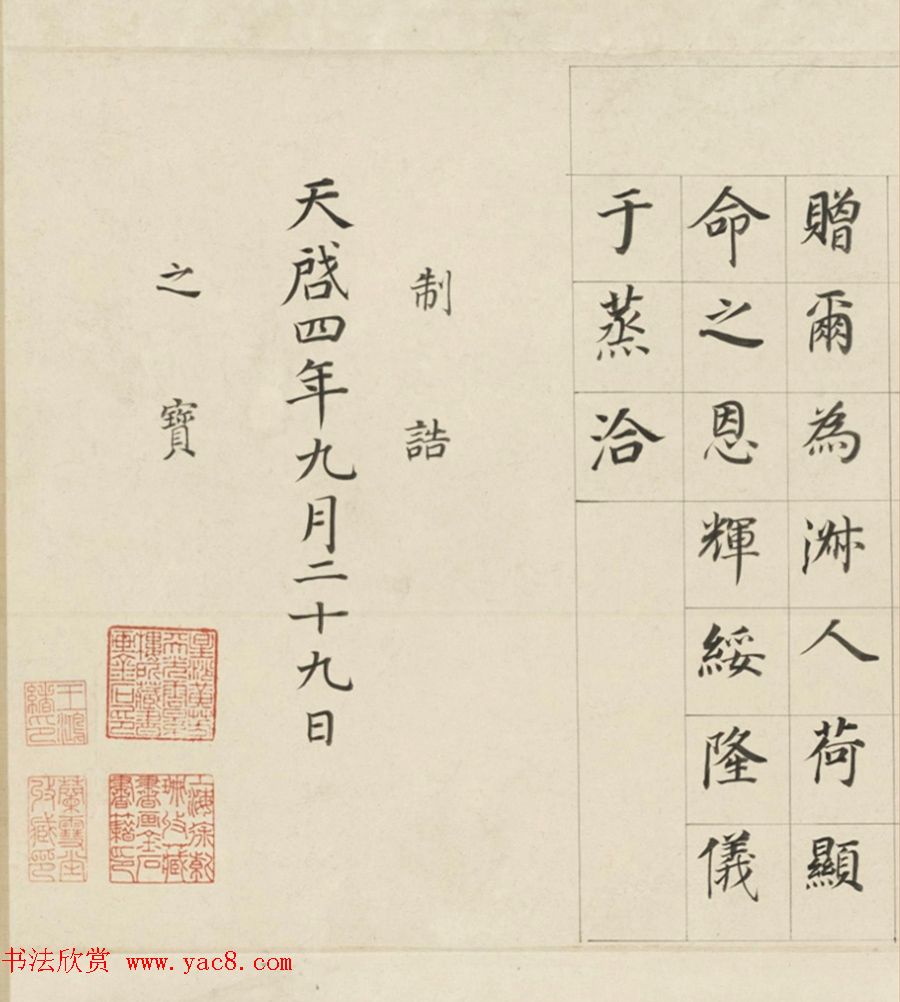 贈爾為淋人荷顯
命之恩輝綏隆儀
于蒸洽
制誥
天啓四年九月二十九日
之寶
王鴻緒印
蘭雪堂
書法欣赏 www.yac8.com